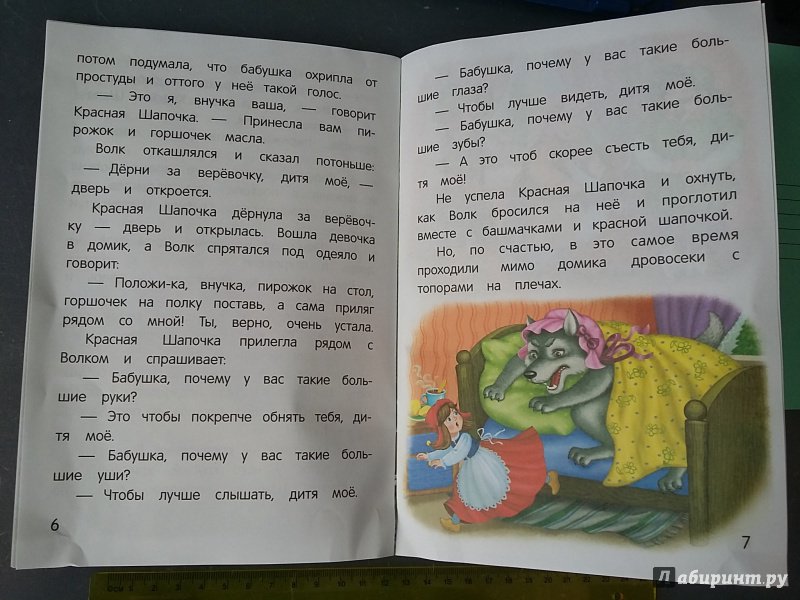 потом подумала, что бабушка охрипла от
простуды и оттого у неё такой голос.
— Это я, внучка ваша, — говорит
Красная Шапочка. — Принесла вам пи-
рожок и горшочек масла.
Волк откашлялся и сказал потоньше:
— Дёрни за верёвочку, дитя моё, —
дверь и откроется.
Красная Шапочка дёрнула за верёвоч-
ку — дверь и открылась. Вошла девочка
в домик, а Волк спрятался под одеяло и
говорит:
— Положи-ка, внучка, пирожок на стол,
горшочек на полку поставь, а сама приляг
рядом со мной! Ты, верно, очень устала.
Красная Шапочка прилегла рядом с
Волком и спрашивает:
— Бабушка, почему у вас такие боль-
шие руки?
— Это чтобы покрепче обнять тебя, ди-
тя моё.
— Бабушка, почему у вас такие боль-
шие уши?
— Чтобы лучше слышать, дитя моё.
6
— Бабушка, почему у вас такие боль-
шие глаза?
— Чтобы лучше видеть, дитя моё.
— Бабушка, почему у вас такие боль-
шие зубы?
— А это чтоб скорее съесть тебя, ди-
тя моё!
Не успела Красная Шапочка и охнуть,
как Волк бросился на неё и проглотил
вместе с башмачками и красной шапочкой.
Но, по счастью, в это самое время
проходили мимо домика дровосеки с
топорами на плечах.
7
Лабиринт.ру